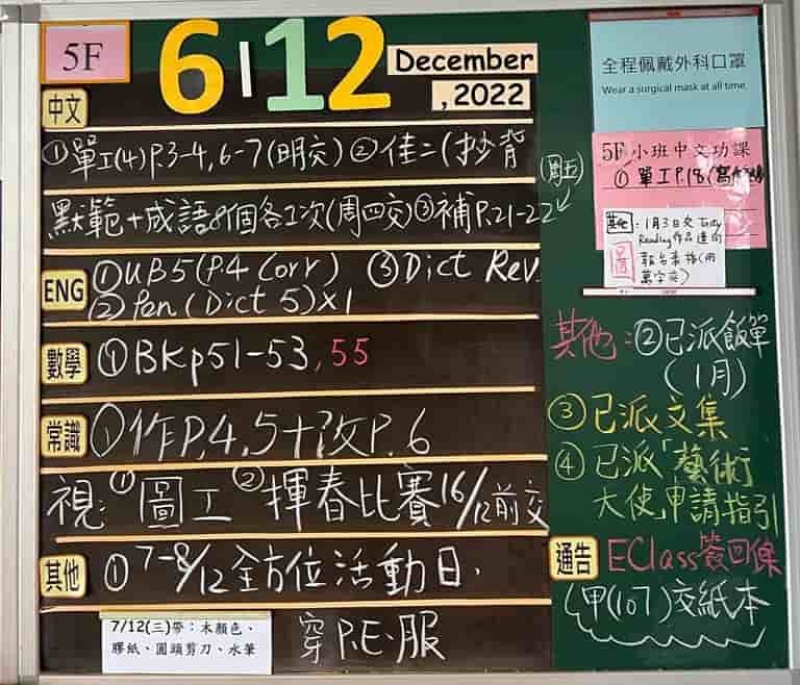 5F
6|12
December
,2022
中文
①單工(4)P.3-4,6-7(明交)②佳二(抄背
默範+成語8個各1次(周四交)③補P.21-22
(周五)
ENG
①UB5(P.4 Corr) ③Dict Rev.
②Pen(Dict 5)X1
數學
①BKp51-53,55
常識
①作P.4,5+改P.6
視:①圖工②揮春比賽16/12前交
其他
①7-8/12全方位活動日.
穿P.E.服
7/12(三)帶:木顏色、
膠紙、圓頭剪刀、水筆
全程佩戴外科口罩
Wear a surgical mask at all time.
5F小班中文功課
①單工P.18(寫
其他:1月3日交
Reading作品連同
報名表格(用
萬字夾)
圖
其他:②已派飯單
(1月)
③已派文集
④已派「藝術
大使」申請指引
通告
EClass簽回條
(甲(107)交紙本